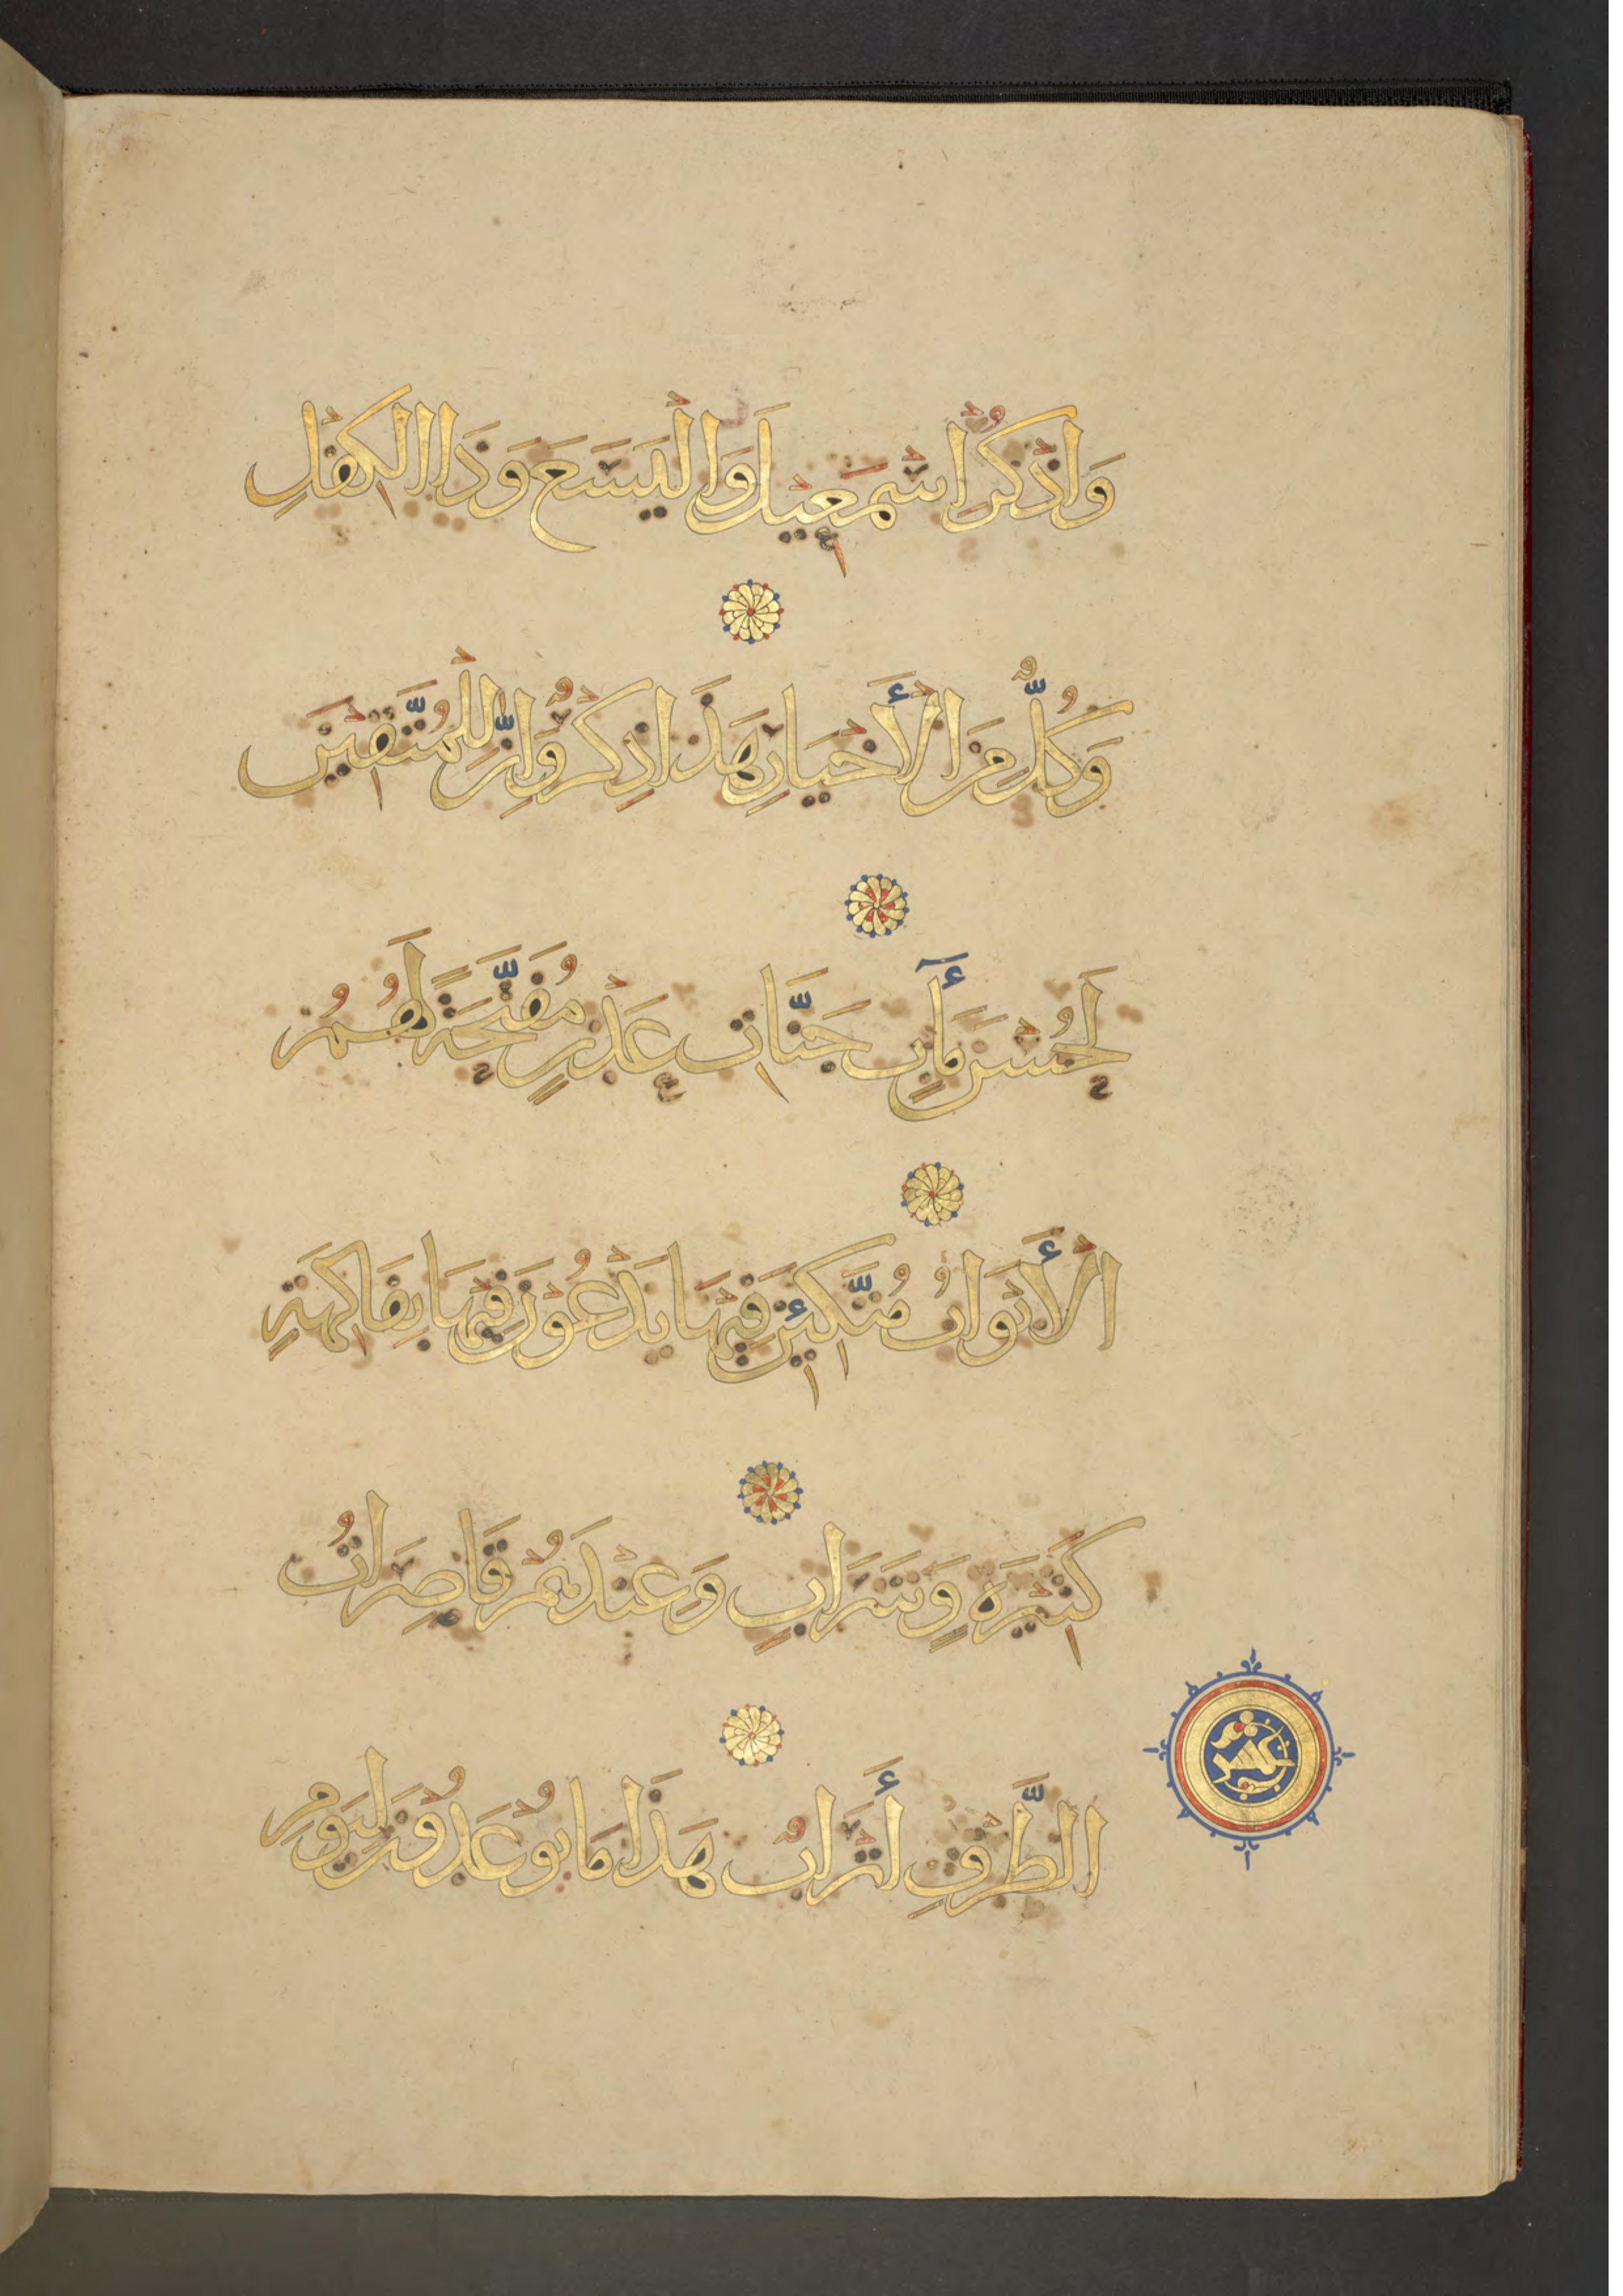 وَاذْكُرْ اسْمَعِيلَ وَالْيَسَعَ وَذَا الْكِفْلِ
وَكُلٌّ مِنَ الْأَخْيَارِ هَذَا ذِكْرٌ وَإِنَّ لِلْمُتَّقِينَ
لَحُسْنَ مَأَبٍ جَنَّاتِ عَدْنٍ مُفَتَّحَةً لَهُمُ
الْأَبْوَابُ مُتَّكِئِينَ فِيهَا يَدْعُونَ فِيهَا بِفَاكِهَةٍ
كَثِيرَةٍ وَشَرَابٍ وَعِنْدَهُمْ قَاصِرَاتُ
الطَّرْفِ أَتْرَابٌ هَذَا مَا يُوعَدُونَ لِيَوْمِ
عشر